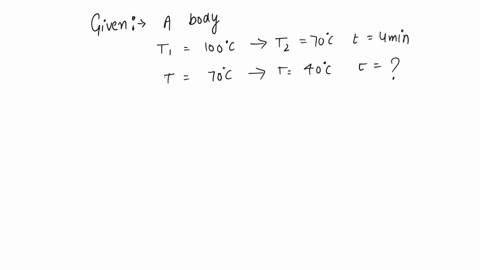 Given:→ A body
T₁ = 100°C → T₂ = 70°C t = 4min
T = 70°C → T = 40°C t = ?